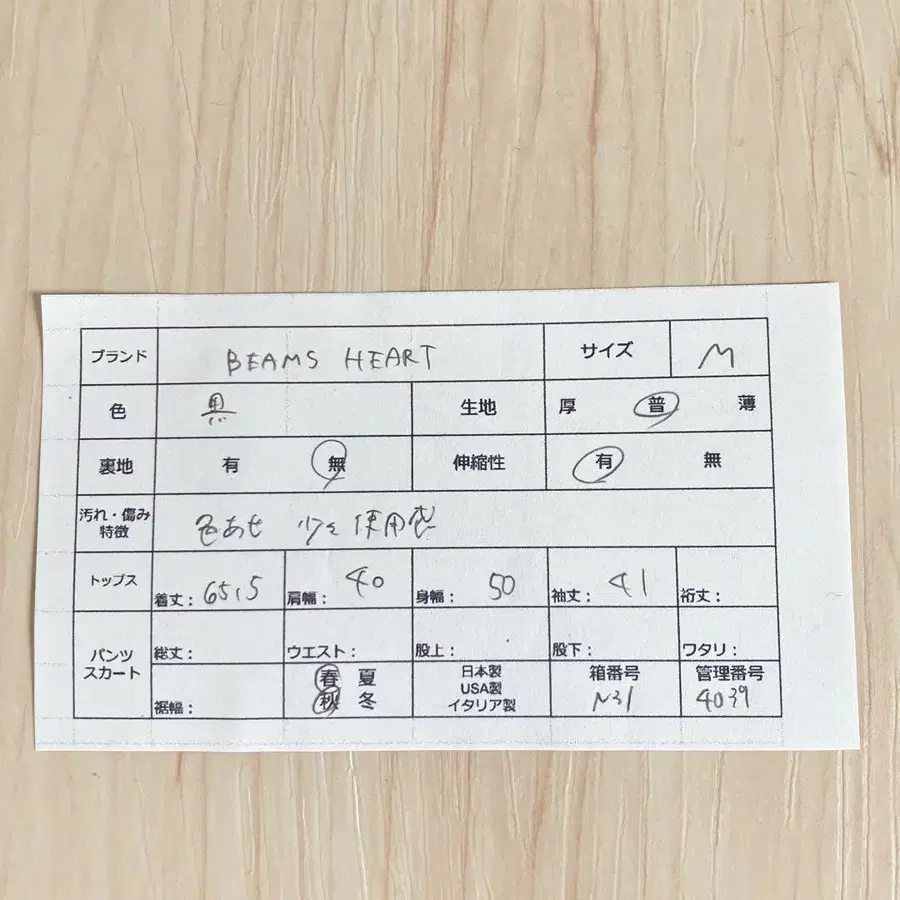 ブランド BEAMS HEART サイズ M
色 黒 生地 厚 普 薄
裏地 有 無 伸縮性 有 無
汚れ・傷み
特徴 色あせ 少々使用感
トップス 着丈：65,5 肩幅：40 身幅：50 袖丈：41 裄丈：
パンツ
スカート 総丈： ウエスト： 股上： 股下： ワタリ：
裾幅： 春 夏
秋 冬
日本製
USA製
イタリア製
箱番号
N31
管理番号
4039